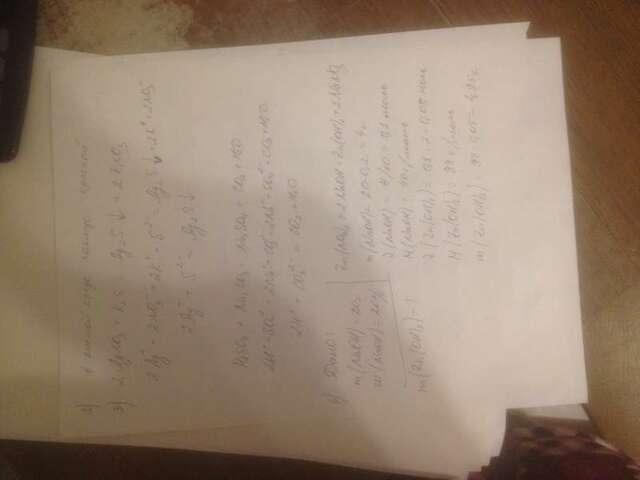 2) в кислой среде лакмус красной
3) 2AgNO₃ + K₂S = Ag₂S↓ + 2KNO₃
2Ag⁺ + 2NO₃⁻ + 2K⁺ + S²⁻ = Ag₂S↓ + 2K⁺ + 2NO₃⁻
2Ag⁺ + S²⁻ = Ag₂S↓
H₂SO₄ + Na₂CO₃ = Na₂SO₄ + CO₂ + H₂O
2H⁺ + SO₄²⁻ + 2Na⁺ + CO₃²⁻ = 2Na⁺ + SO₄²⁻ + CO₂ + H₂O
2H⁺ + CO₃²⁻ = CO₂ + H₂O
Дано:
m(NaOH) = 20г
w(NaOH) = 20%
m(Zn(OH)₂) - ?
Zn(NO₃)₂ + 2NaOH = Zn(OH)₂ + 2NaNO₃
m(NaOH) = 20·0,2 = 4г
ν(NaOH) = 4/40 = 0,1 моль
M(NaOH) = 40г/моль
ν(Zn(OH)₂) = 0,1 : 2 = 0,05 моль
M(Zn(OH)₂) = 99 г/моль
m(Zn(OH)₂) = 99·0,05 = 4,95г